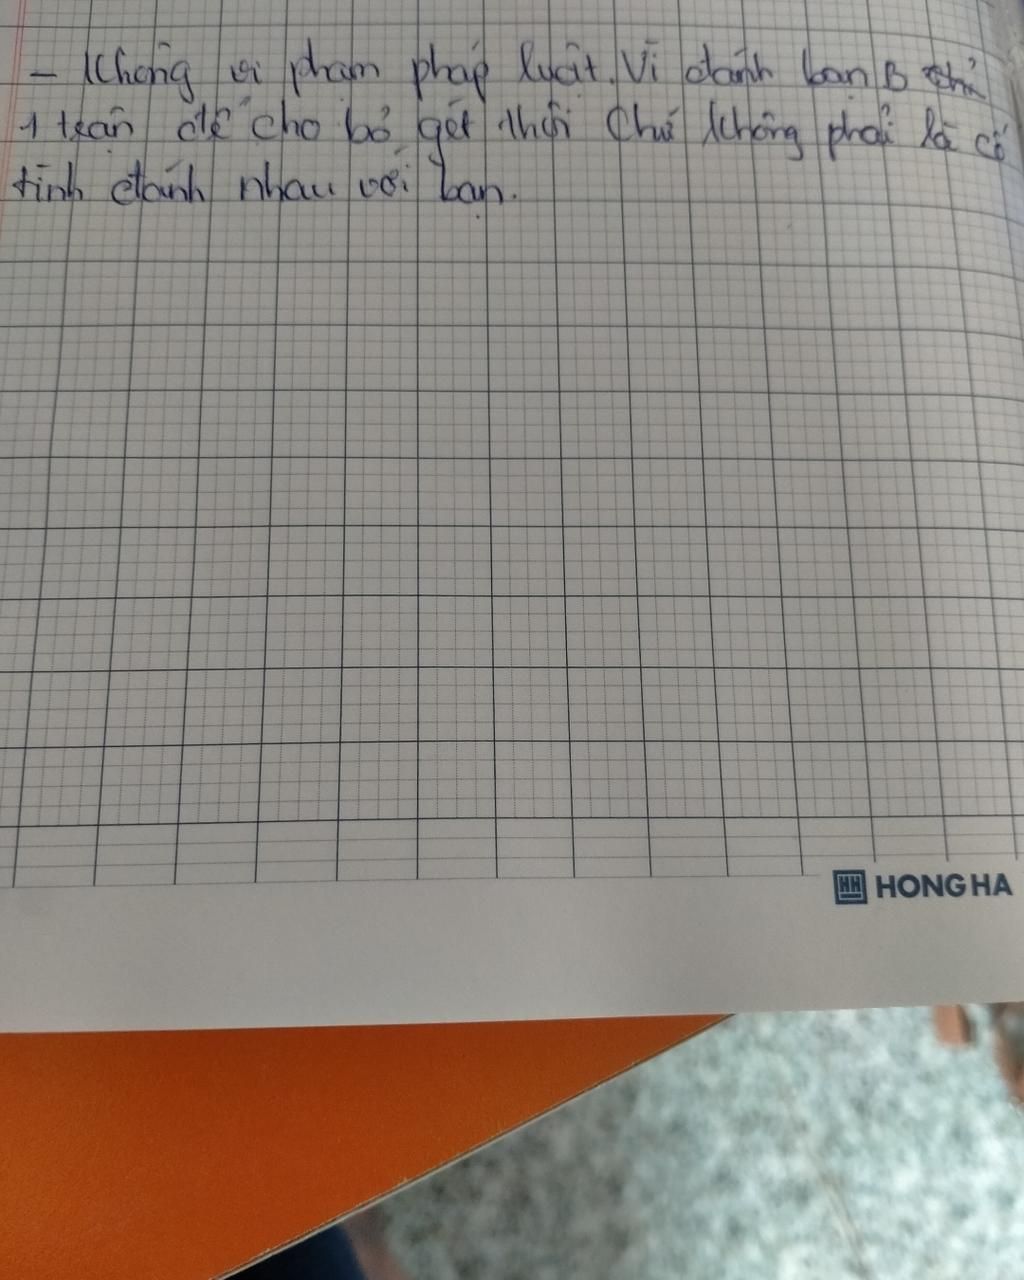 - Không vi phạm pháp luật. Vì đánh bạn B
1 trận để cho bỏ gét thôi chứ không phải là cố
tình đánh nhau với bạn.
HH HONG HA